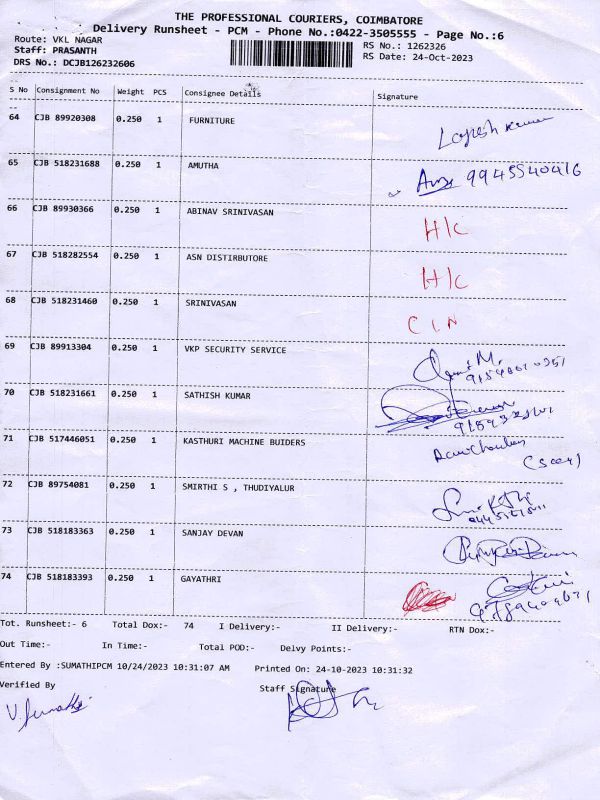 THE PROFESSIONAL COURIERS, COIMBATORE
Delivery Runsheet - PCM - Phone No.:0422-3505555 - Page No.:6
Route: VKL NAGAR RS No.: 1262326
Staff: PRASANTH RS Date: 24-Oct-2023
DRS No.: DCJB126232606
S No Consignment No Weight PCS Consignee Details Signature
64 CJB 89920308 0.250 1 FURNITURE
65 CJB 518231688 0.250 1 AMUTHA
66 CJB 89930366 0.250 1 ABINAV SRINIVASAN H/C
67 CJB 518282554 0.250 1 ASN DISTIRBUTORE H/C
68 CJB 518231460 0.250 1 SRINIVASAN
69 CJB 89913304 0.250 1 VKP SECURITY SERVICE
70 CJB 518231661 0.250 1 SATHISH KUMAR
71 CJB 517446051 0.250 1 KASTHURI MACHINE BUIDERS
72 CJB 89754081 0.250 1 SMIRTHI S , THUDIYALUR
73 CJB 518183363 0.250 1 SANJAY DEVAN
74 CJB 518183393 0.250 1 GAYATHRI
Tot. Runsheet:- 6 Total Dox:- 74 I Delivery:- II Delivery:- RTN Dox:-
Out Time:- In Time:- Total POD:- Delvy Points:-
Entered By :SUMATHIPCM 10/24/2023 10:31:07 AM Printed On: 24-10-2023 10:31:32
Verified By Staff Signature